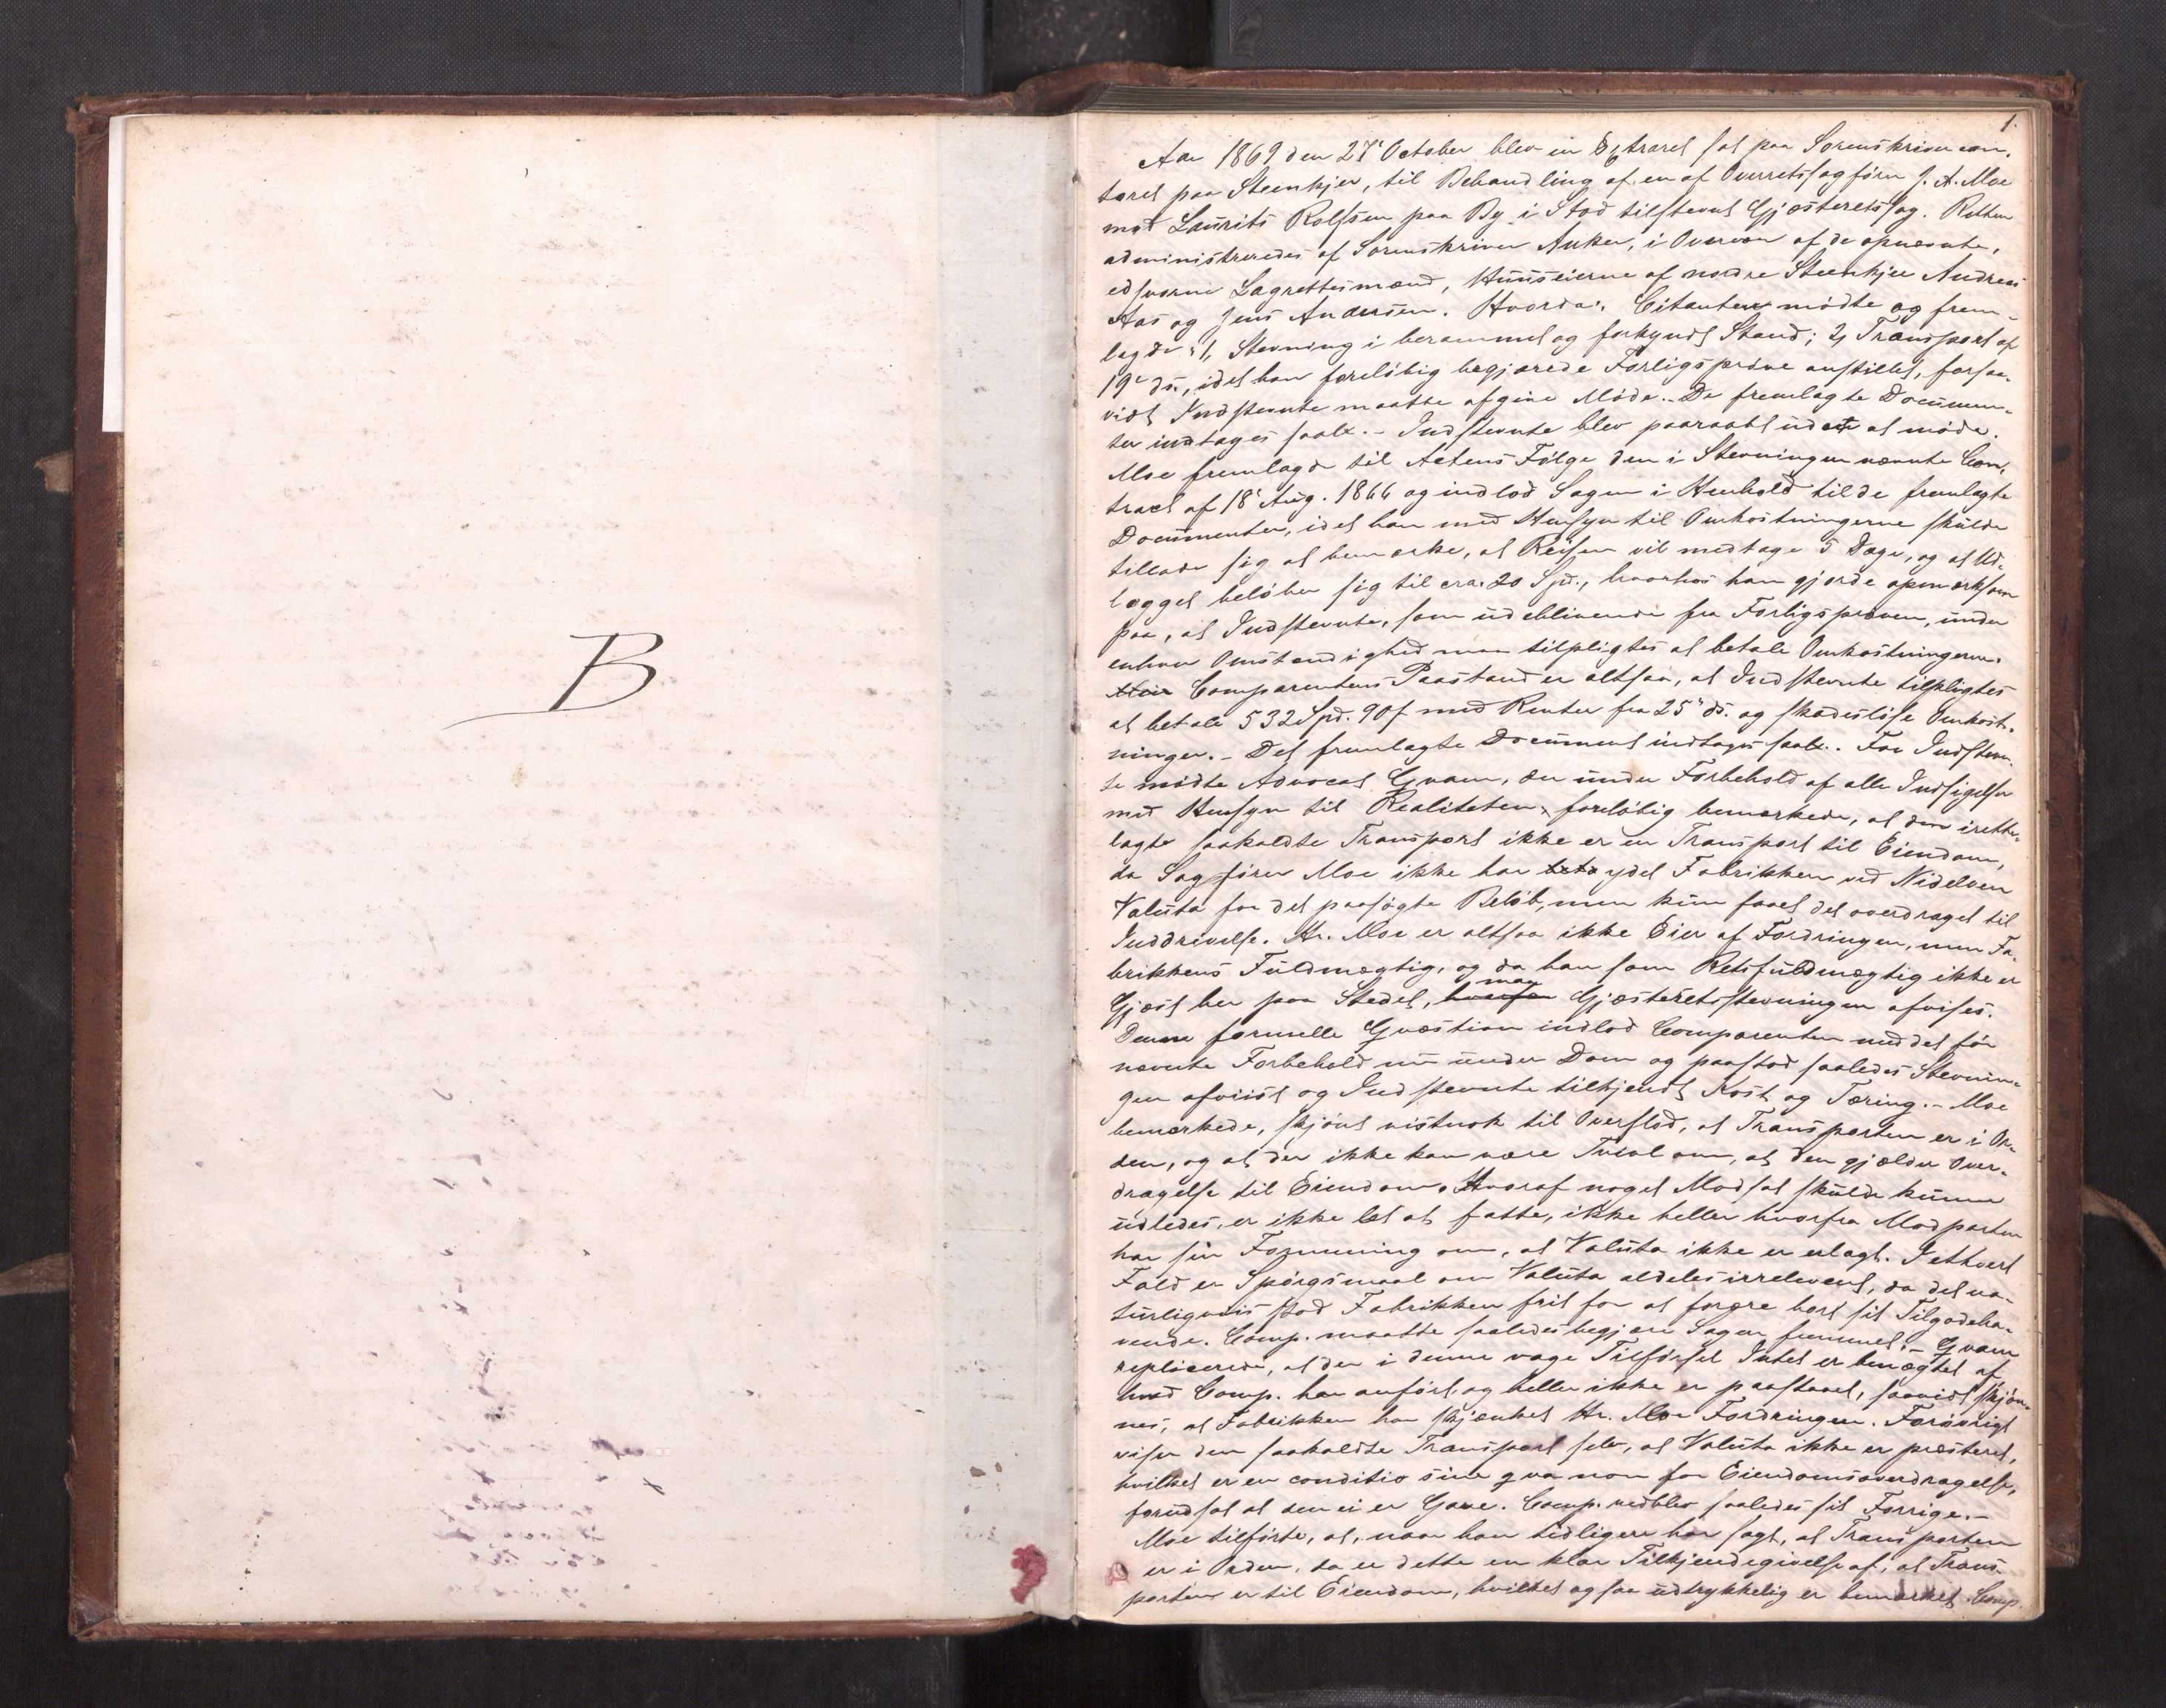 B
1.
Aar 1869 den 27de October blev en Extraret sat paa Sorenskrivercon-
toret paa Steenkjer, til Behandling af en af Overretssagfører J. A. Moe
mod Laurits Rolfsen paa By i Stod tilstevnt Gjæsteretssag. Retten
administreredes af Sorenskriver Anker, i Overvær af de opnævnte,
edsvorne Lagrettesmænd, Huuseierne af nordre Steenkjer Andreas
Aas og Jens Andersen. Hvorda: Citanten mødte og frem-
lagde: 1, Stevning i berammet og forkyndt Stand; 2, Transport af
19de ds., idet han foreløbig begjærede Forligsprøve anstillet, forsaa-
vidt Indstevnte maatte afgive Møde. - De fremlagte Documen-
ter indtages saal. - Indstevnte blev paaraabt uden at møde.
Moe fremlagde til Actens Følge den i Stevningen nævnte Con-
tract af 18de Aug. 1866 og indlod Sagen i Henhold til de fremlagte
Documenter, idet han med Hensyn til Omkostningerne skulde
tillade sig at bemærke, at Reisen vil medtage 5 Dage, og at Ud-
lægget beløber sig til cra. 20 Spd., hvorhos han gjorde opmærksom
paa, at Indstevnte, som udeblivende fra Forligsprøven, under
enhver Omstændighed maa tilpligtes at betale Omkostningerne.
Comparentens Paastand er altsaa, at Indstevnte tilpligtes
at betale 532 Spd. 90 s med Renter fra 25de ds. og skadesløse Omkost-
ninger. - Det fremlagte Document indtages saal. - For Indstevn-
te mødte Advocat Qvam, der under Forbehold af alle Indsigelser
med Hensyn til Realiteten, foreløbig bemærkede, at den irette-
lagte saakaldte Transport ikke er en Transport til Eiendom,
da Sagfører Moe ikke har ydet Fabrikken ved Nidelven
Valuta for det paasøgte Beløb, men kun faaet det overdraget til
Inddrivelse. Hr. Moe er altsaa ikke Eier af Fordringen, men Fa-
brikkens Fuldmægtig, og da han som Retsfuldmægtig ikke er
Gjæst her paa Stedet, maa Gjæsteretsstevningen afvises.
Denne formelle Qvæstion indlod Comparenten med det før
nævnte Forbehold nu under Dom og paastod saaledes Stevnin-
gen afviist og Indstevnte tilkjendt Kost og Tæring. - Moe
bemærkede, skjønt vistnok til Overflod, at Transporten er i Or-
den, og at der ikke kan være Tvivl om, at den gjælder Over-
dragelse til Eiendom. Hvoraf noget Modsat skulde kunne
udledes, er ikke let at fatte, ikke heller hvorfra Modparten
har sin Formening om, at Valuta ikke er erlagt. I ethvert
Fald er Spørgsmaal om Valuta aldeles irrelevant, da det na-
turligviis stod Fabrikken frit for at forære bort sit Tilgodeha-
vende. Comp. maatte saaledes begjære Sagen fremmet. - Qvam
replicerede, at der i denne vage Tilførsel Intet er benægtet af
hvad Comp. har anført og heller ikke er paastaaet, saavidt skjøn-
nes, at Fabrikken har skjænket Hr. Moe Fordringen. Forøvrigt
viser den saakaldte Transport selv, at Valuta ikke er præsteret,
hvilket er en conditio sine qva non for Eiendomsoverdragelse,
forudsat at den ei er Gave. Comp. vedblev saaledes sit Forrige. -
Moe tilførte, at, naar han tidligere har sagt, at Transporten
er i Orden, da er dette en klar Tilkjendegivelse af, at Trans-
porten er til Eiendom, hvilket ogsaa udtrykkelig er bemærket. Comp.